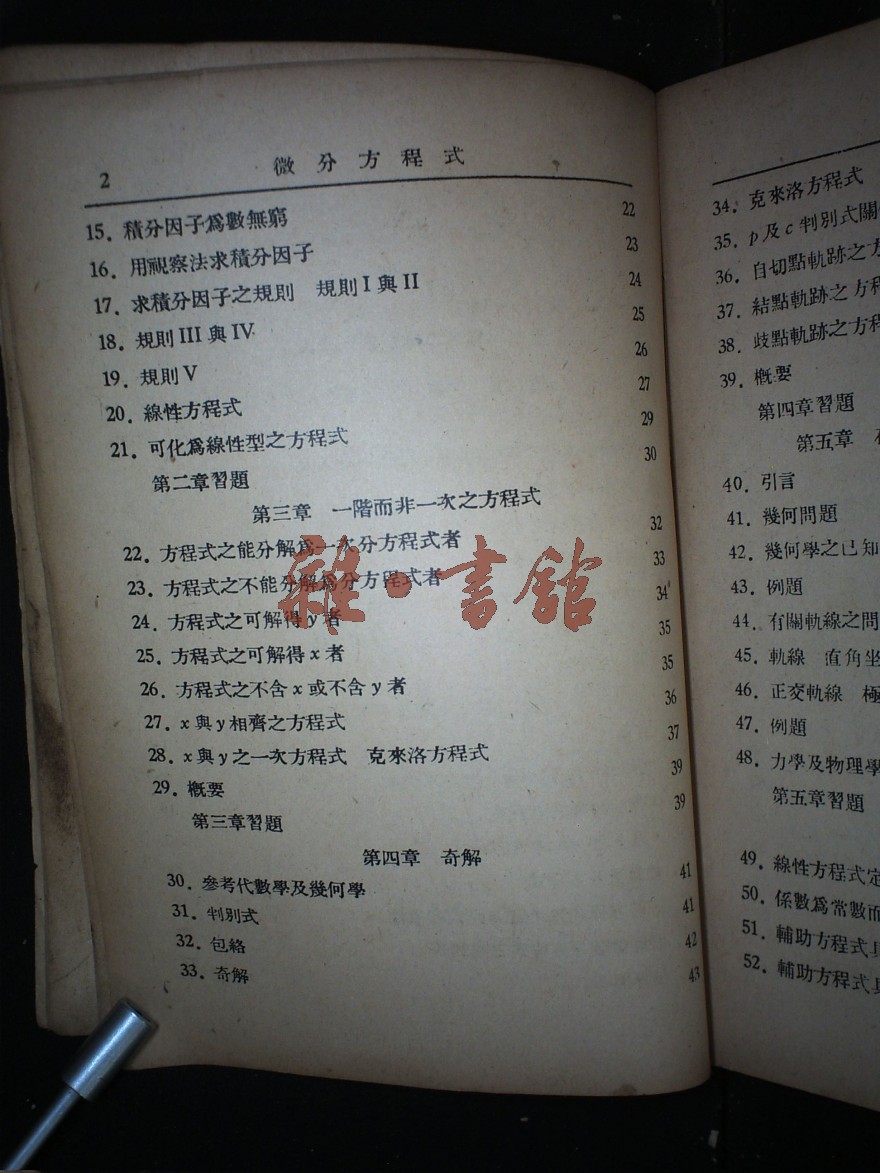 2
微分方程式
15. 積分因子爲數無窮 22
16. 用視察法求積分因子 23
17. 求積分因子之規則 規則I與II 24
18. 規則III與IV 25
19. 規則V 26
20. 線性方程式 27
21. 可化爲線性型之方程式 29
第二章習題 30
第三章 一階而非一次之方程式
22. 方程式之能分解爲一次分方程式者 32
23. 方程式之不能分解爲分方程式者 33
24. 方程式之可解得y者 34
25. 方程式之可解得x者 35
26. 方程式之不含x或不含y者 35
27. x與y相齊之方程式 36
28. x與y之一次方程式 克來洛方程式 37
29. 槪要 39
第三章習題 39
第四章 奇解
30. 參考代數學及幾何學 41
31. 判別式 41
32. 包絡 42
33. 奇解 43
雜·書館
34. 克來洛方程式
35. p及c判別式關
36. 自切點軌跡之方
37. 結點軌跡之方程
38. 歧點軌跡之方程
39. 槪要
第四章習題
第五章
40. 引言
41. 幾何問題
42. 幾何學之已知
43. 例題
44. 有關軌線之問
45. 軌線 直角坐
46. 正交軌線 極
47. 例題
48. 力學及物理學
第五章習題
49. 線性方程式定
50. 係數爲常數而
51. 輔助方程式
52. 輔助方程式具